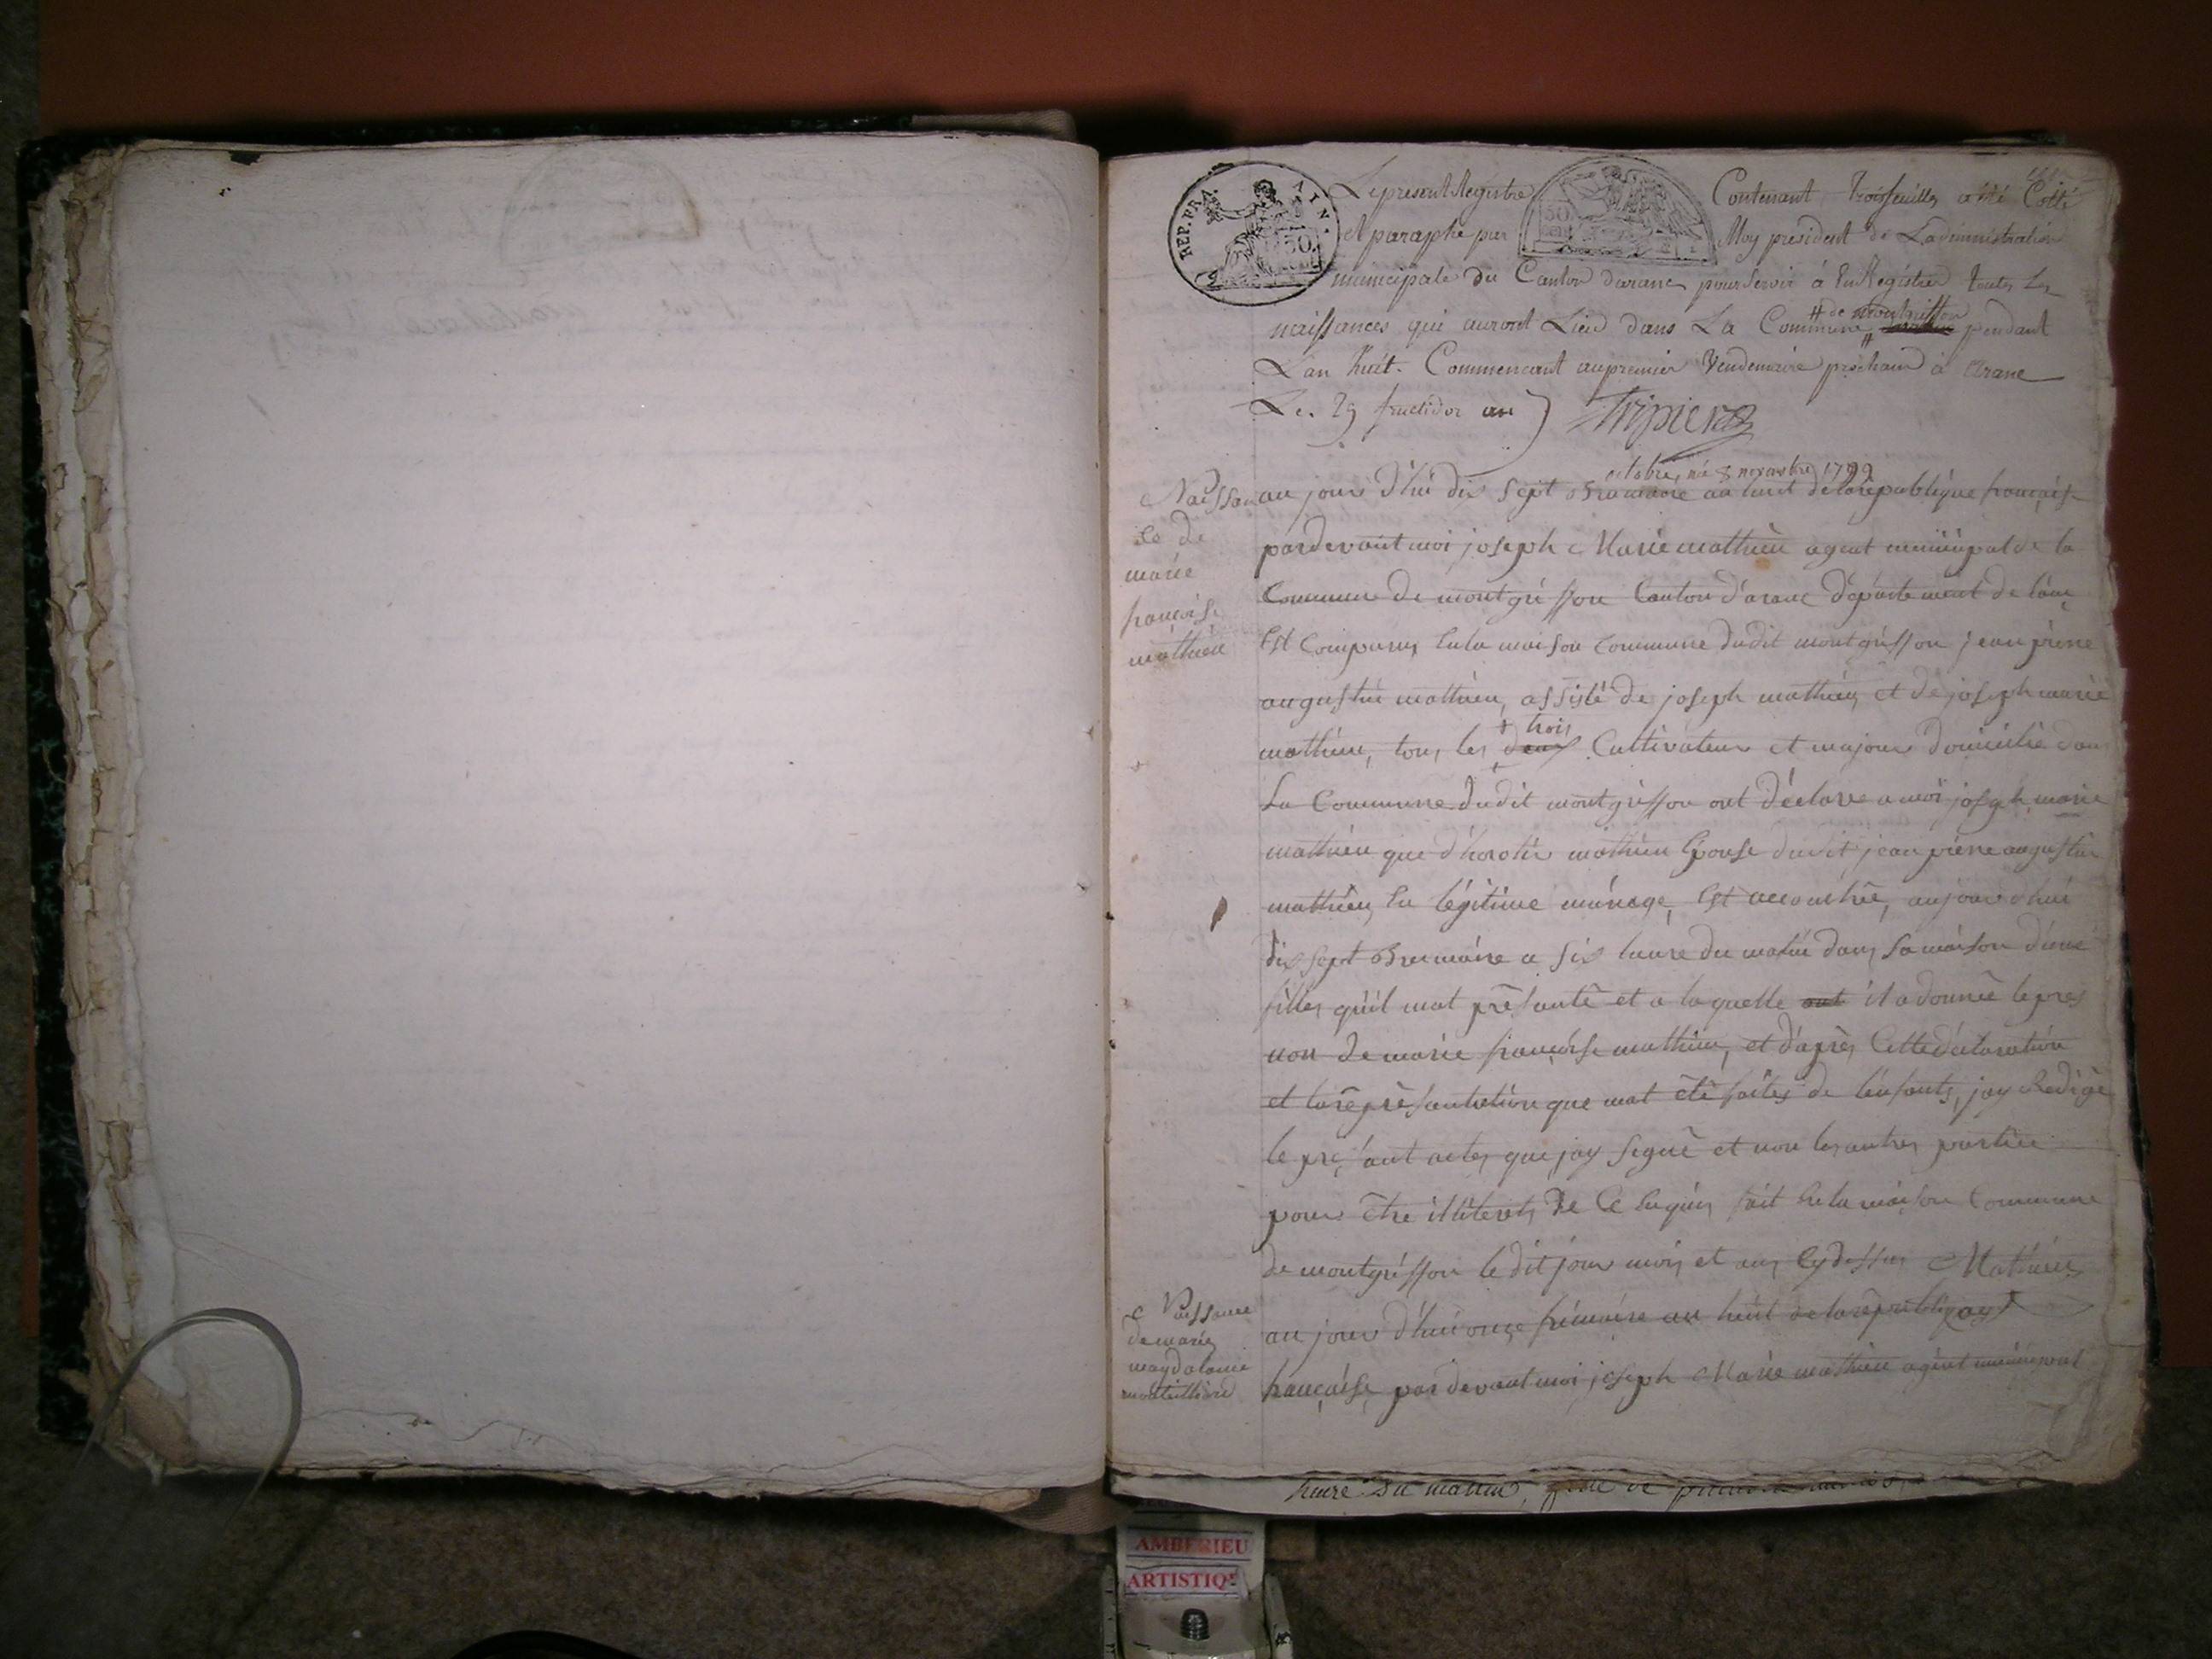 REP. FRA. AIN.
50
50
Le present Registre Contenant trois feuilles a été Cotté
et paraphé par Moy president de Ladministration
municipale du Canton darane pour servir à EnRegistrer toutes Les
naissances qui auront Lieu dans La Commune # de montgriffon pendant
L'an huit. Commencant au premier Vendemiaire prochain à arane
Le 29 fructidor an 7 Tripier
octobre, né 8 novembre 1799
Naissan
ce de
marie
françoise
mathieu
au jour d'hui dix sept Brumaire an huit de la republique françaîse
pardevant moi joseph Marie mathieu agent municipal de la
Commune de montgriffon Canton d'aranc département de l'ain
Est Comparus En la maison Commune dudit montgriffon jean pierre
augustin mathieu, assisté de joseph mathieu et de joseph marie
mathieu, tous les + trois deux Cultivateur et majeur domicilié dans
La Commune dudit montgriffon ont déclaré a moi joseph marie
mathieu que d'horotée mathieu Epouse dudit jean pierre augustin
mathieu, En légitime ménage, Est accouchée, aujourd'hui
dix sept Brumaire a six heure du matin dans sa maison d'une
filles qu'il mat présanté et a laquelle ont il a donnée le prés
non de marie françoise mathieu, et d'après Cette déclaration
et la représantation que mat été faites de l'enfants, jay Redigé
le présant actes que jay signé et non les autres parties
pour être illiterets de Ce Enquis fait En la maison Commune
de montgriffon le dit jour mois et ans Cydessus Mathieu
agt
Naissance
de marie
magdelaine
montillard
au jour d'hui onze frimaire an huit de la republique
française, pardevant moi joseph Marie mathieu agent municipal
heure du matin,
AMBERIEU
ARTISTIQ